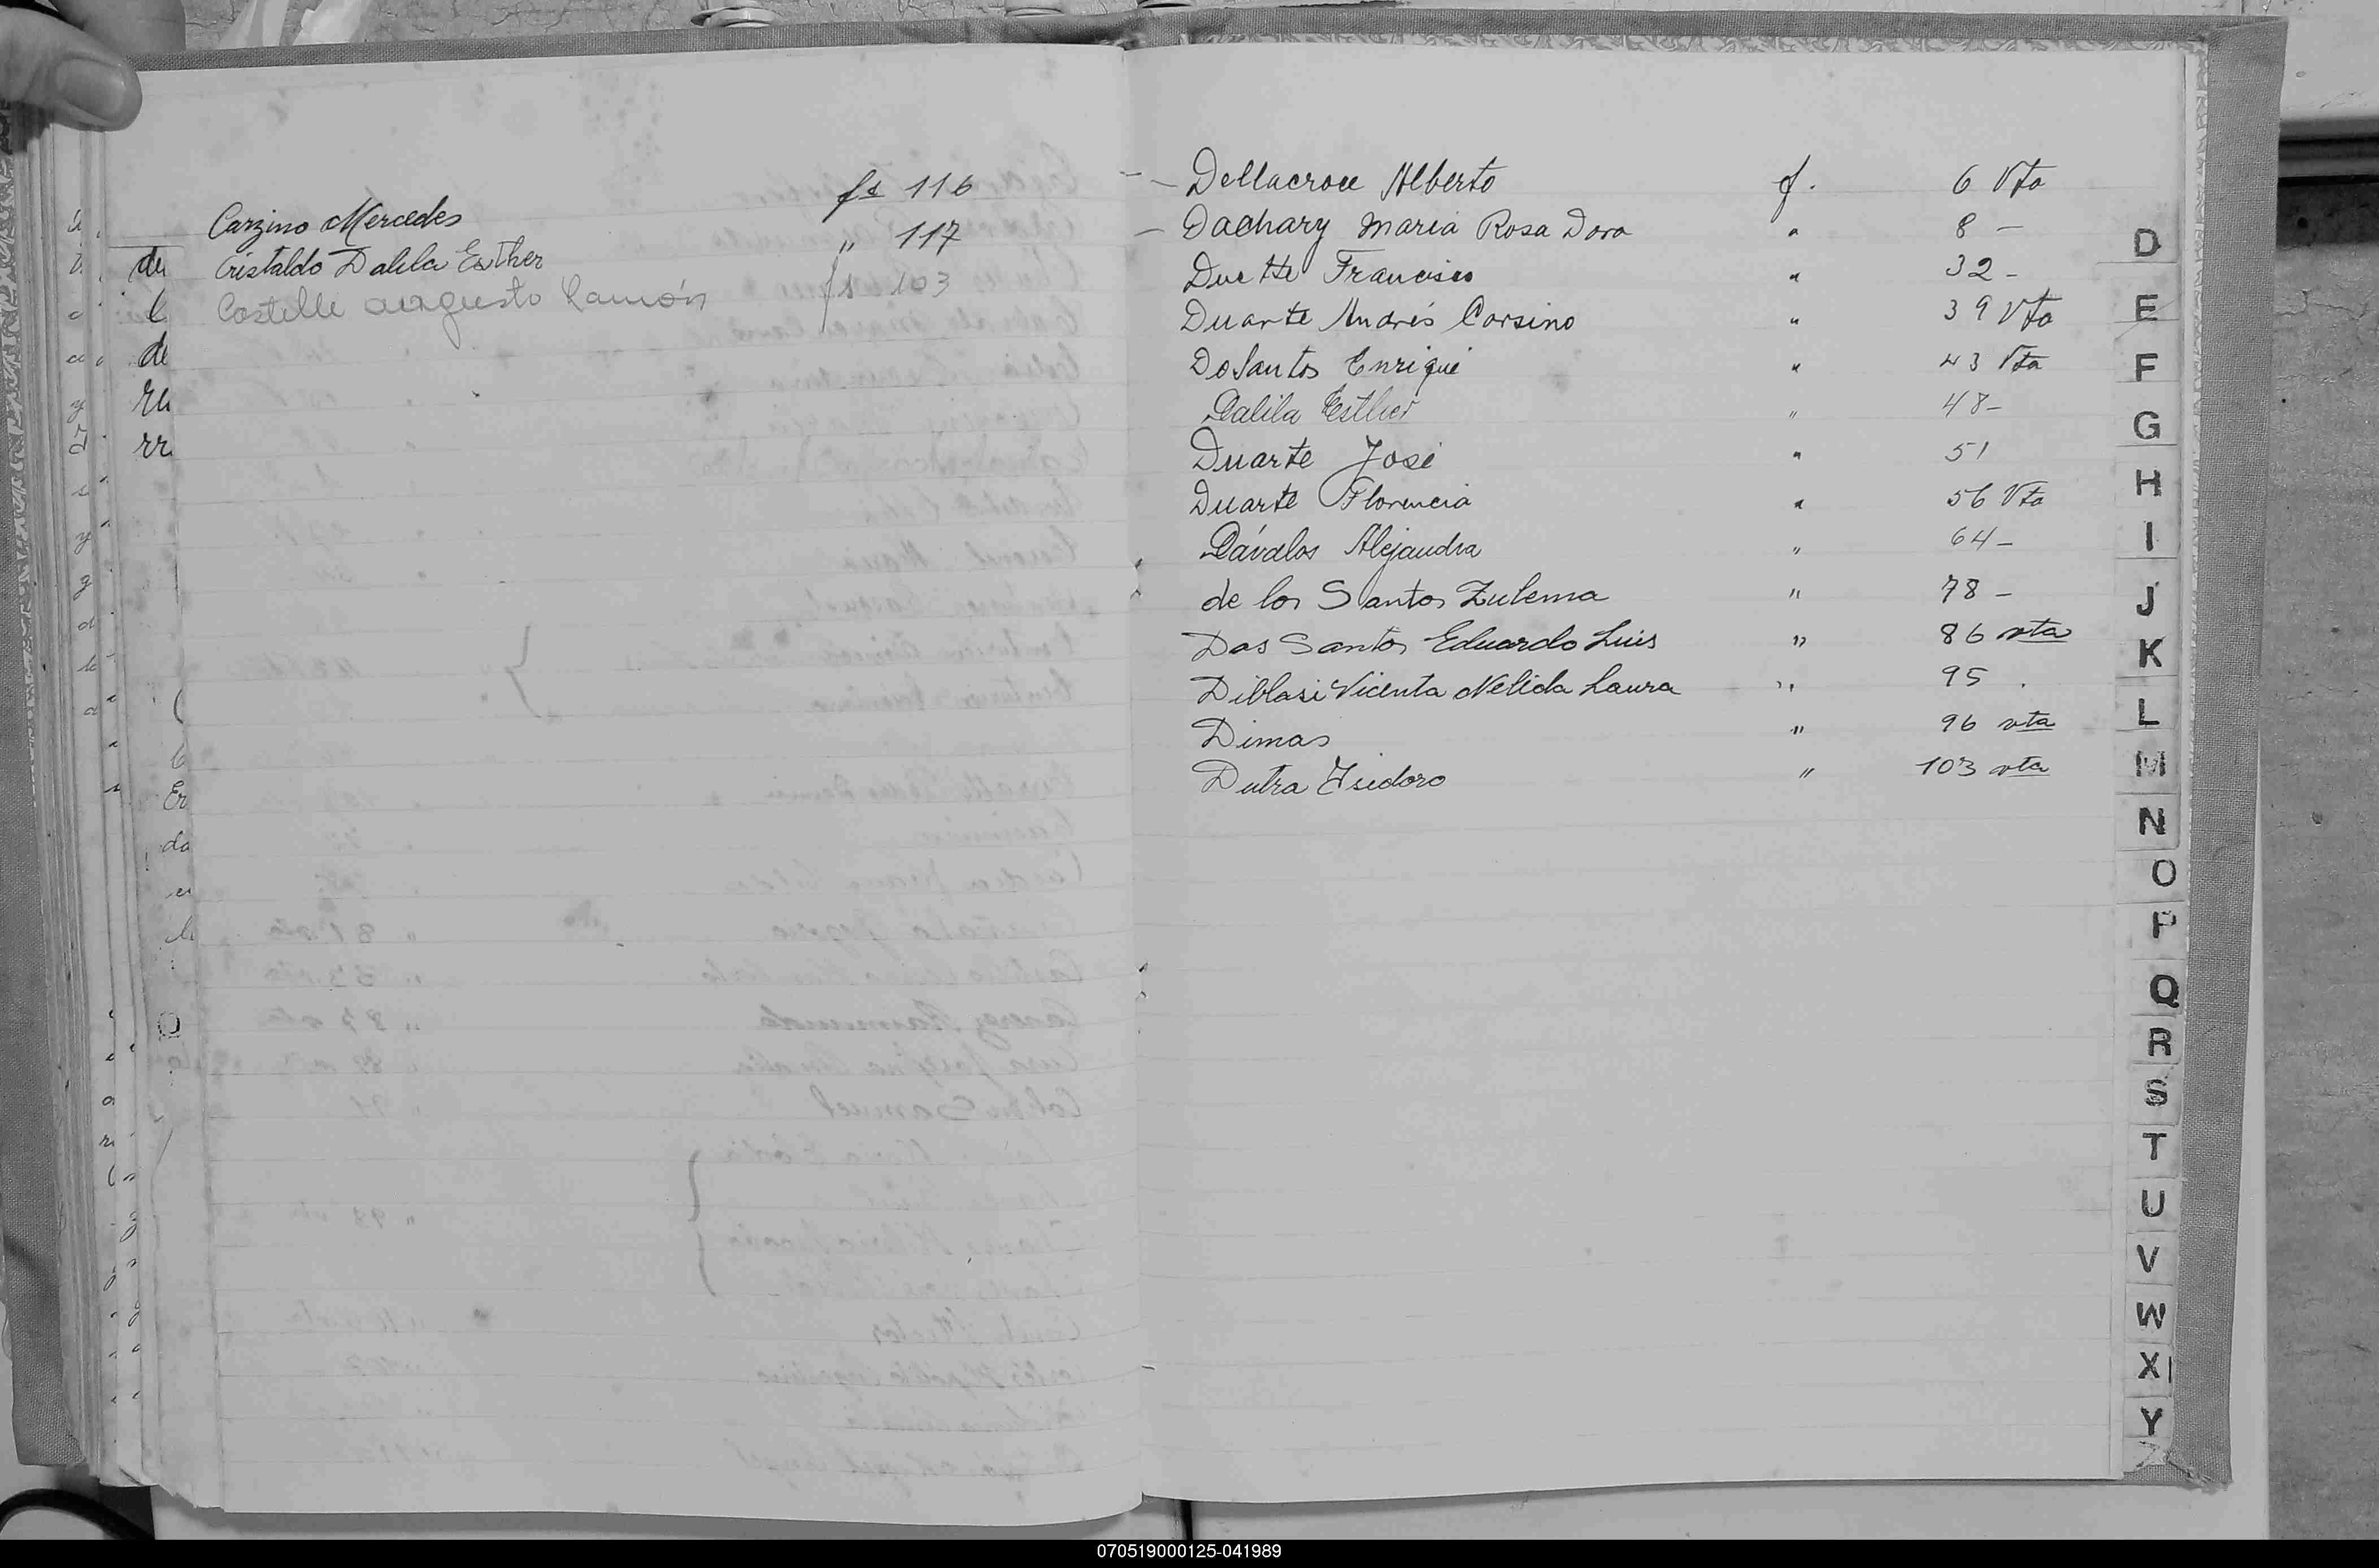 Carzino Mercedes fs 116
Cristaldo Dalila Esther " 117
Costelle Augusto Ramón fs 103
Dellacroce Alberto f. 6 Vta
Dachary Maria Rosa Dora " 8 –
Duette Francisco " 32 –
Duarte Andrés Corsino " 39 Vta
DoSantos Enrique " 43 Vta
Dalila Esther " 48 –
Duarte José " 51
Duarte Florencia " 56 Vta
Dávalos Alejandra " 64 –
de los Santos Zulema " 78 –
Dos Santos Eduardo Luis " 86 vta
Diblasi Vicenta Nelida Laura " 95 .
Dimas " 96 vta
Dutra Isidoro " 103 vta
D
E
F
G
H
I
J
K
L
M
N
O
P
Q
R
S
T
U
V
W
X
Y
070519000125-041989